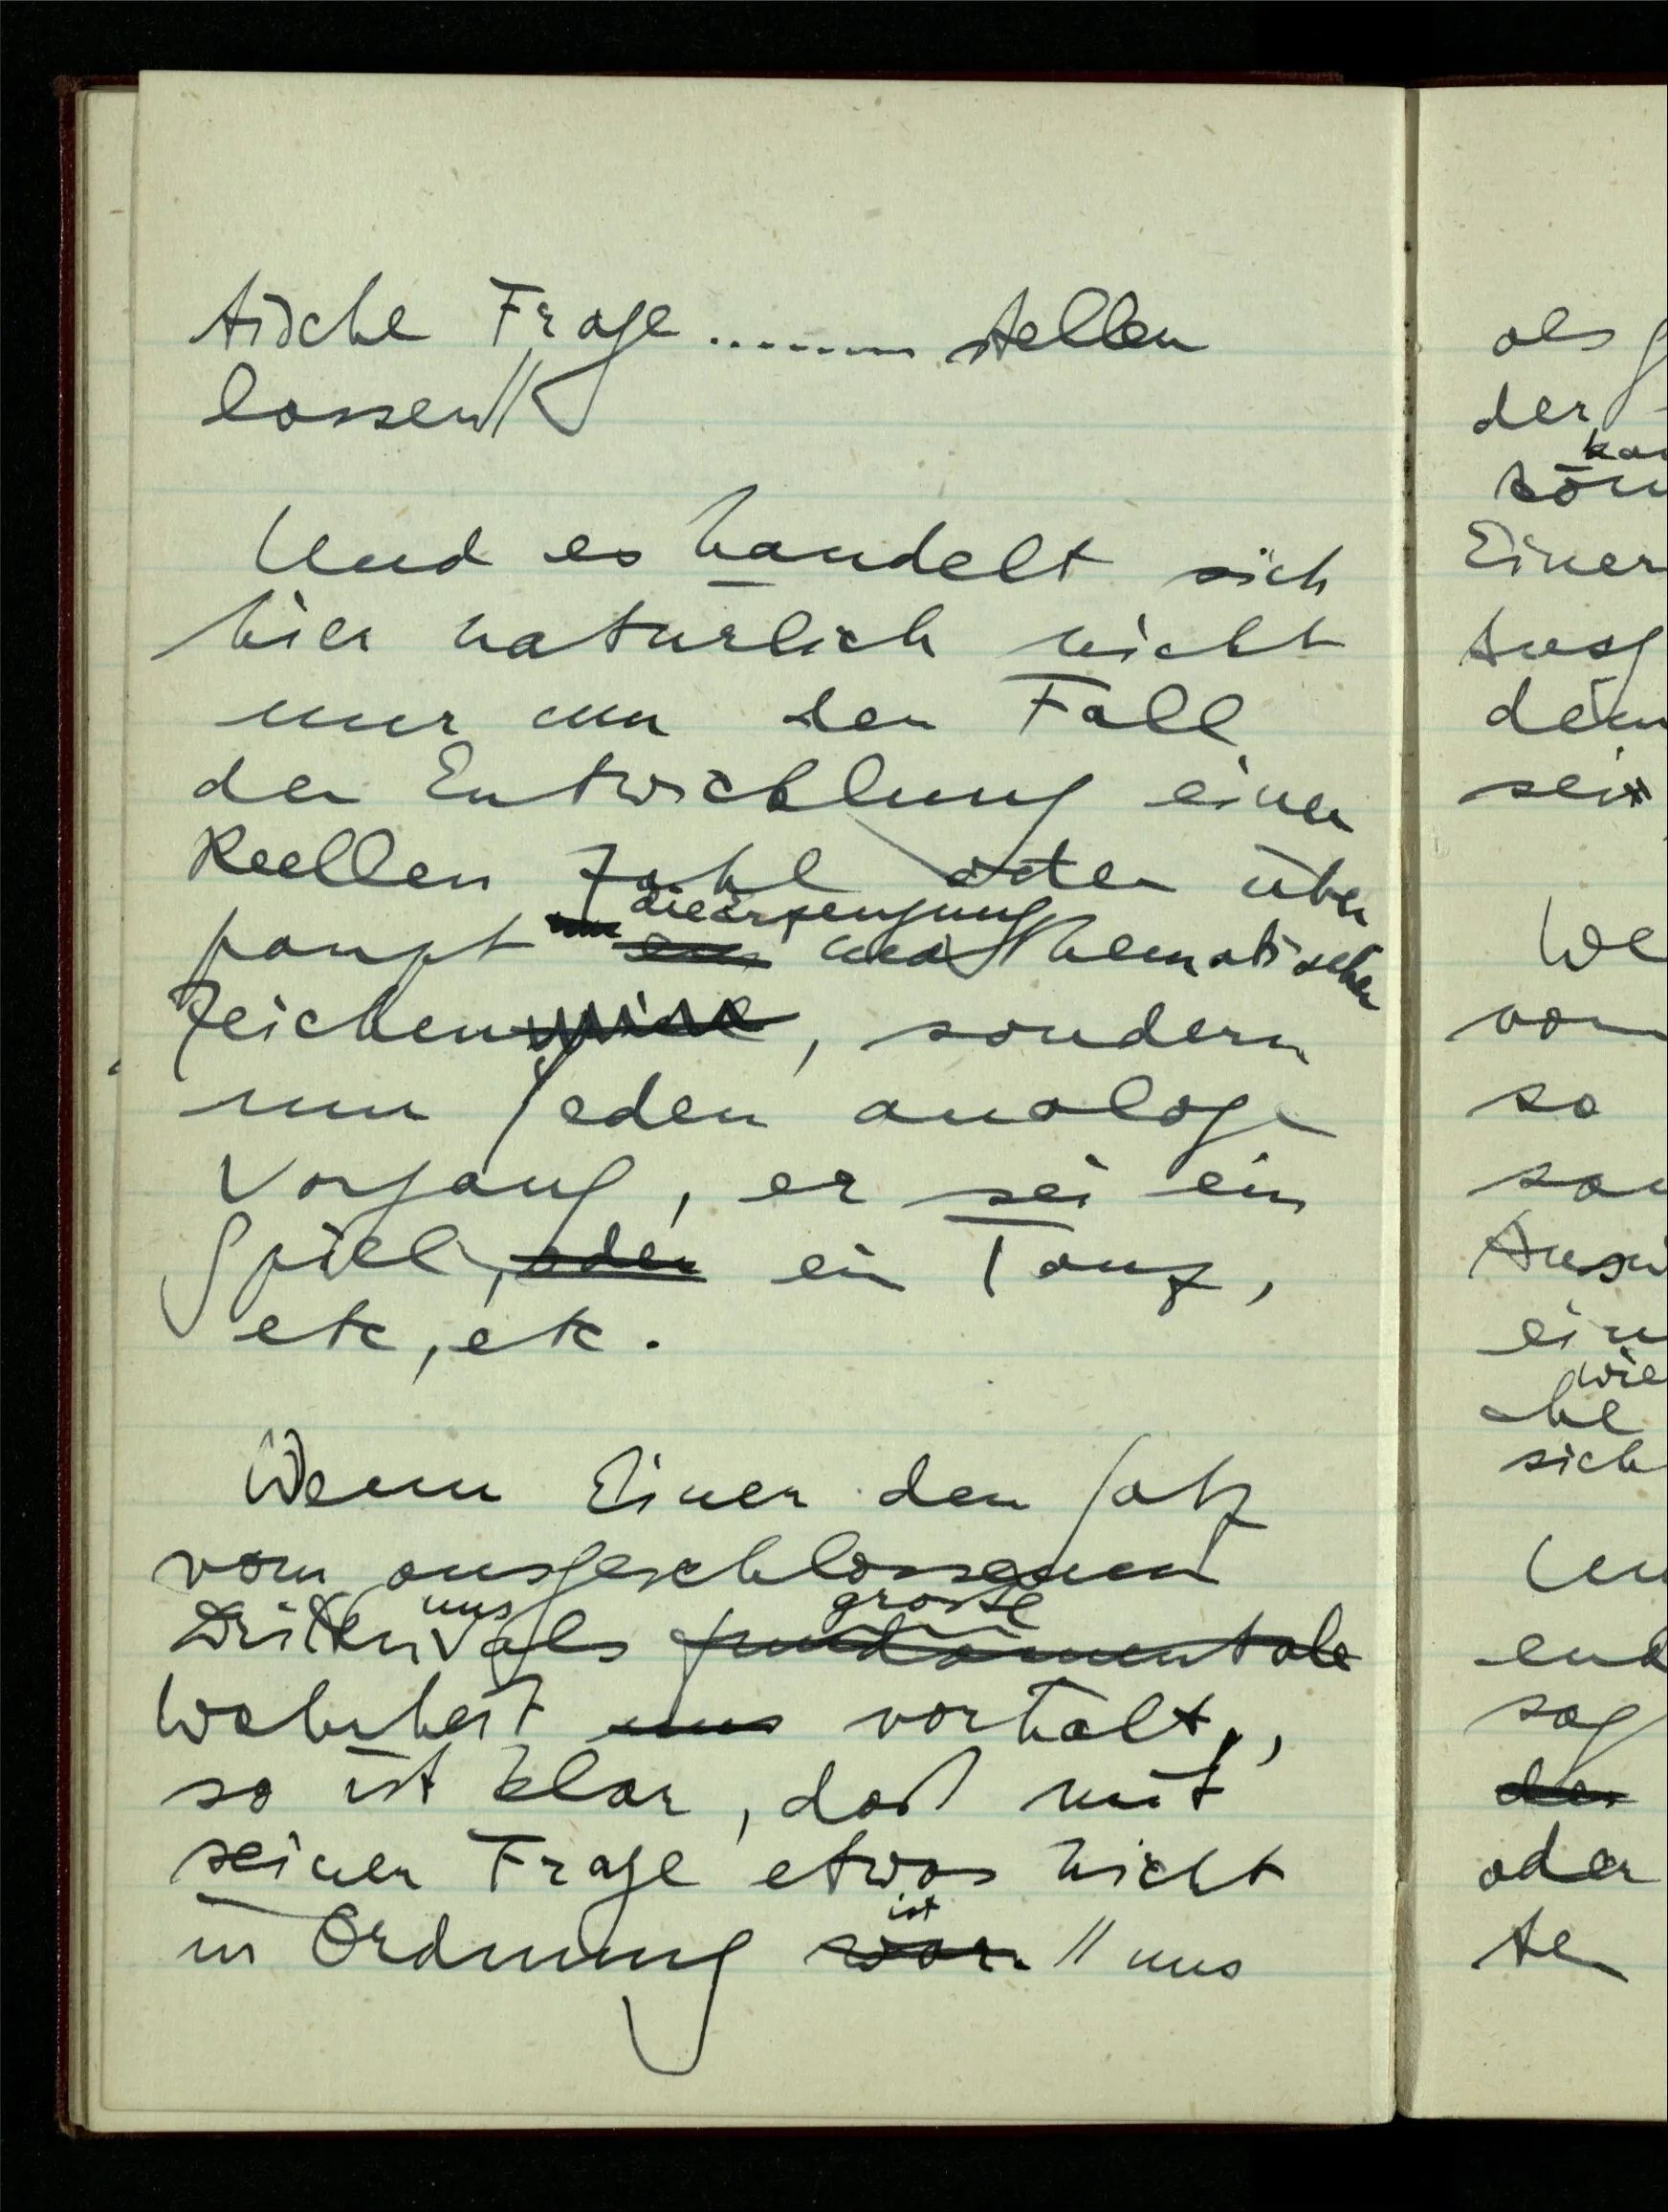 tische Frage ........ stellen
lassen//
Und es handelt sich
hier natürlich nicht
nur um den Fall
der Entwicklung einer
Reellen Zahl oder über
haupt um die Erzeugung mathematischer
Zeichen, sondern
um jeden analoge
Vorgang, er sei ein
Spiel, oder ein Tanz,
etc, etc.
Wenn Einer den Satz
vom ausgeschlossenen
Dritten uns als fundamentale große
Wahrheit uns vorhält,,
so ist klar, daß mit
seiner Frage etwas nicht
in Ordnung war ist // uns
als
der
Einer
dem
sei
We
von
so
ein
wie
che
sich
sag
der
oder
te